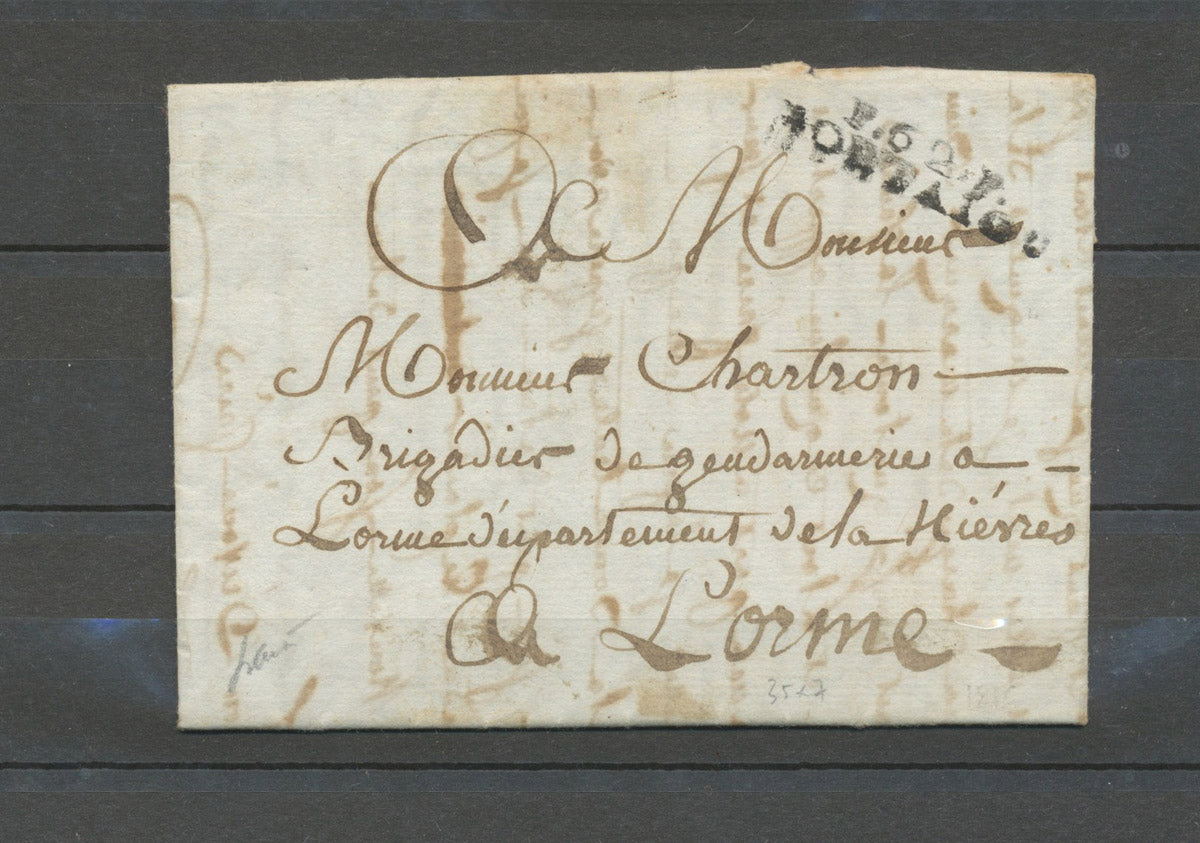 P.62.P.
MORTAIGU
A Monsieur
Monsieur Chartron
Brigadier de gendarmerie a
Lorme département de la Niévres
A Lorme
35x7